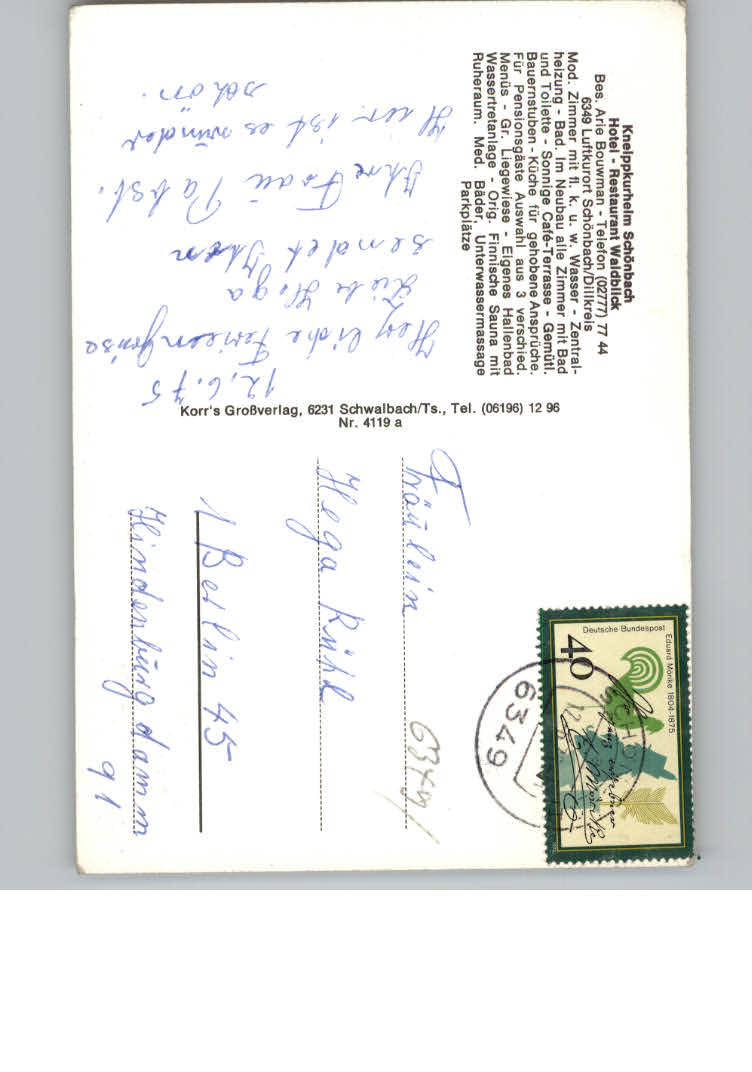 Kneippkurheim Schönbach
Hotel - Restaurant Waldblick
Bes. Arie Bouwman - Telefon (02777) 77 44
6349 Luftkurort Schönbach/Dillkreis
Mod. Zimmer mit fl. k. u. w. Wasser - Zentral-
heizung - Bad. Im Neubau alle Zimmer mit Bad
und Toilette - Sonnige Café-Terrasse - Gemütl.
Bauernstuben - Küche für gehobene Ansprüche.
Für Pensionsgäste Auswahl aus 3 verschied.
Menüs - Gr. Liegewiese - Eigenes Hallenbad
Wassertretanlage - Orig. Finnische Sauna mit
Ruheraum. Med. Bäder, Unterwassermassage
Parkplätze
12.6.75
Herzliche Feriengrüße
Liebe Helga
sendet Ihnen
Ihre Frau Pabst.
Hier ist es wunder
schön.
Korr's Großverlag, 6231 Schwalbach/Ts., Tel. (06196) 12 96
Nr. 4119 a
Fräulein
Helga Rühl
1 Berlin 45
Hindenburgdamm
91
6349/
Deutsche Bundespost
Eduard Mörike 1804-1875
40
6349